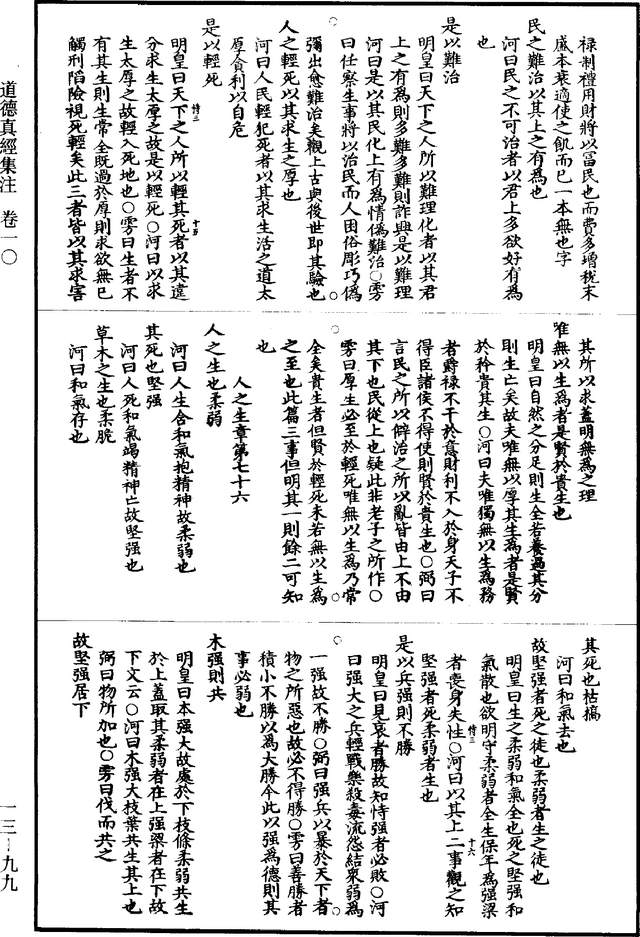 祿制禮用財將以富民也而費多增稅末
盛本衰適使之飢而已一本無也字
民之難治以其上之有為也
河曰民之不可治者以君上多欲好有為
也
是以難治
明皇曰天下之人所以難理化者以其君
上之有為則多難多難則詐興是以難理
河曰是以其民化上有為情偽難治○雱
曰任察生事將以治民而人困俗彫巧偽
彌出愈難治矣觀上古與後世即其驗也
人之輕死以其求生之厚也
河曰人民輕犯死者以其求生活之道太
厚貪利以自危
是以輕死
明皇曰天下之人所以輕其死者以其違
分求生太厚之故是以輕死○河曰以求
生太厚之故輕入死地也○雱曰生者不
有其生則生常全既過於厚則求欲無已
觸刑陷險視死輕矣此三者皆以其求害
其所以求蓋明無為之理
唯無以生為者是賢於貴生也
明皇曰自然之分足則生全若養過其分
則生亡矣故夫唯無以厚其生為者是賢
於矜貴其生○河曰夫唯獨無以生為務
者爵祿不干於意財利不入於身天子不
得臣諸侯不得使則賢於貴生也○弼曰
言民之所以僻治之所以亂皆由上不由
其下也民從上也疑此非老子之所作○
雱曰厚生必至於輕死唯無以生為乃常
全矣貴生者但賢於輕死未若無以生為
之至也此篇三事但明其一則餘二可知
也
人之生章第七十六
人之生也柔弱
河曰人生含和氣抱精神故柔弱也
其死也堅强
河曰人死和氣竭精神亡故堅强也
草木之生也柔脆
河曰和氣存也
其死也枯槁
河曰和氣去也
故堅强者死之徒也柔弱者生之徒也
明皇曰生之柔弱和氣全也死之堅强和
氣散也欲明守柔弱者全生保年為强梁
者喪身失性○河曰以其上二事觀之知
堅强者死柔弱者生也
是以兵强則不勝
明皇曰見哀者勝故知恃强者必敗○河
曰强大之兵輕戰樂殺毒流怨結衆弱為
一强故不勝○弼曰强兵以暴於天下者
物之所惡也故必不得勝○雱曰善勝者
積小不勝以為大勝今此以强為德則其
事必弱也
木强則共
明皇曰本强大故處於下枝條柔弱共生
於上蓋取其柔弱者在上强梁者在下故
下文云○河曰木强大枝葉共生其上也
弼曰物所加也○雱曰伐而共之
故堅强居下
道德真經集注 卷一〇
一三—九九